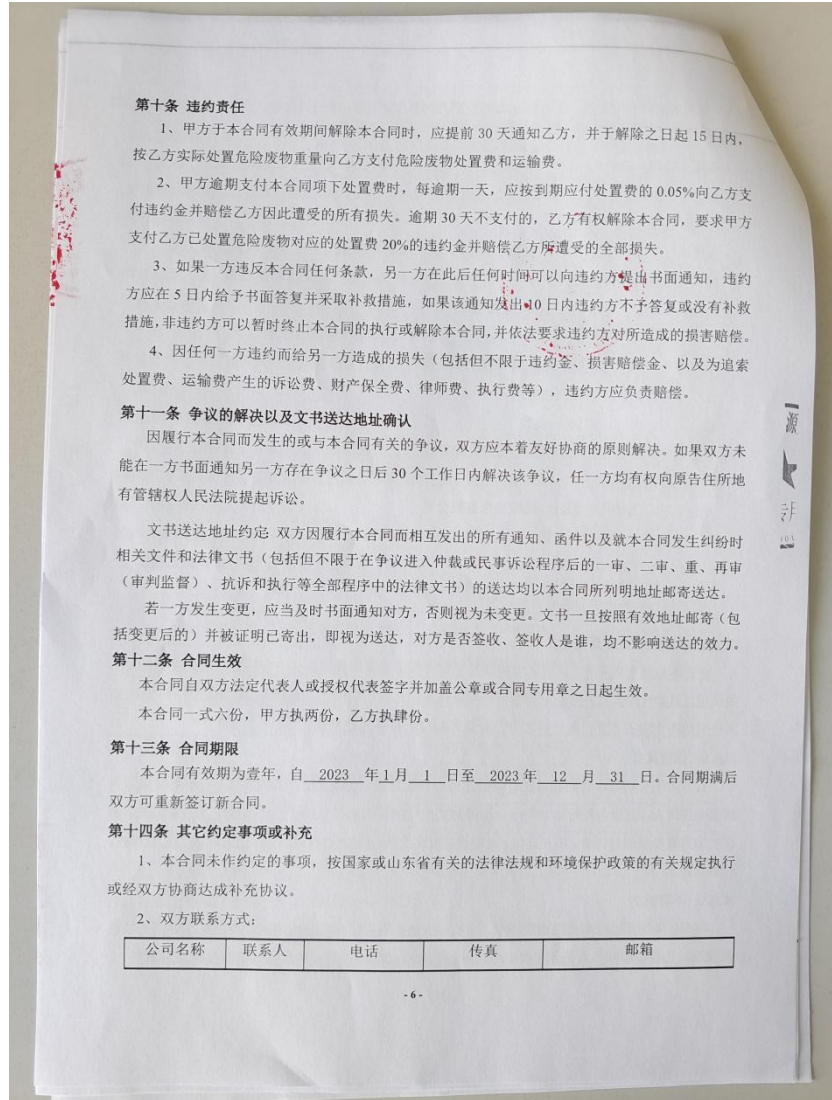 第十条 违约责任
1、甲方于本合同有效期间解除本合同时，应提前 30 天通知乙方，并于解除之日起 15 日内，
按乙方实际处置危险废物重量向乙方支付危险废物处置费和运输费。
2、甲方逾期支付本合同项下处置费时，每逾期一天，应按到期应付处置费的 0.05%向乙方支
付违约金并赔偿乙方因此遭受的所有损失。逾期 30 天不支付的，乙方有权解除本合同，要求甲方
支付乙方已处置危险废物对应的处置费 20%的违约金并赔偿乙方所遭受的全部损失。
3、如果一方违反本合同任何条款，另一方在此后任何时间可以向违约方提出书面通知，违约
方应在 5 日内给予书面答复并采取补救措施，如果该通知发出 10 日内违约方不予答复或没有补救
措施，非违约方可以暂时终止本合同的执行或解除本合同，并依法要求违约方对所造成的损害赔偿。
4、因任何一方违约而给另一方造成的损失（包括但不限于违约金、损害赔偿金、以及为追索
处置费、运输费产生的诉讼费、财产保全费、律师费、执行费等），违约方应负责赔偿。
第十一条 争议的解决以及文书送达地址确认
因履行本合同而发生的或与本合同有关的争议，双方应本着友好协商的原则解决。如果双方未
能在一方书面通知另一方存在争议之日后 30 个工作日内解决该争议，任一方均有权向原告住所地
有管辖权人民法院提起诉讼。
文书送达地址约定: 双方因履行本合同而相互发出的所有通知、函件以及就本合同发生纠纷时
相关文件和法律文书（包括但不限于在争议进入仲裁或民事诉讼程序后的一审、二审、重、再审
（审判监督）、抗诉和执行等全部程序中的法律文书）的送达均以本合同所列明地址邮寄送达。
若一方发生变更，应当及时书面通知对方，否则视为未变更。文书一旦按照有效地址邮寄（包
括变更后的）并被证明已寄出，即视为送达，对方是否签收、签收人是谁，均不影响送达的效力。
第十二条 合同生效
本合同自双方法定代表人或授权代表签字并加盖公章或合同专用章之日起生效。
本合同一式六份，甲方执两份，乙方执肆份。
第十三条 合同期限
本合同有效期为壹年，自 2023 年 1 月 1 日至 2023 年 12 月 31 日。合同期满后
双方可重新签订新合同。
第十四条 其它约定事项或补充
1、本合同未作约定的事项，按国家或山东省有关的法律法规和环境保护政策的有关规定执行
或经双方协商达成补充协议。
2、双方联系方式：
公司名称 联系人 电话 传真 邮箱
- 6 -
源